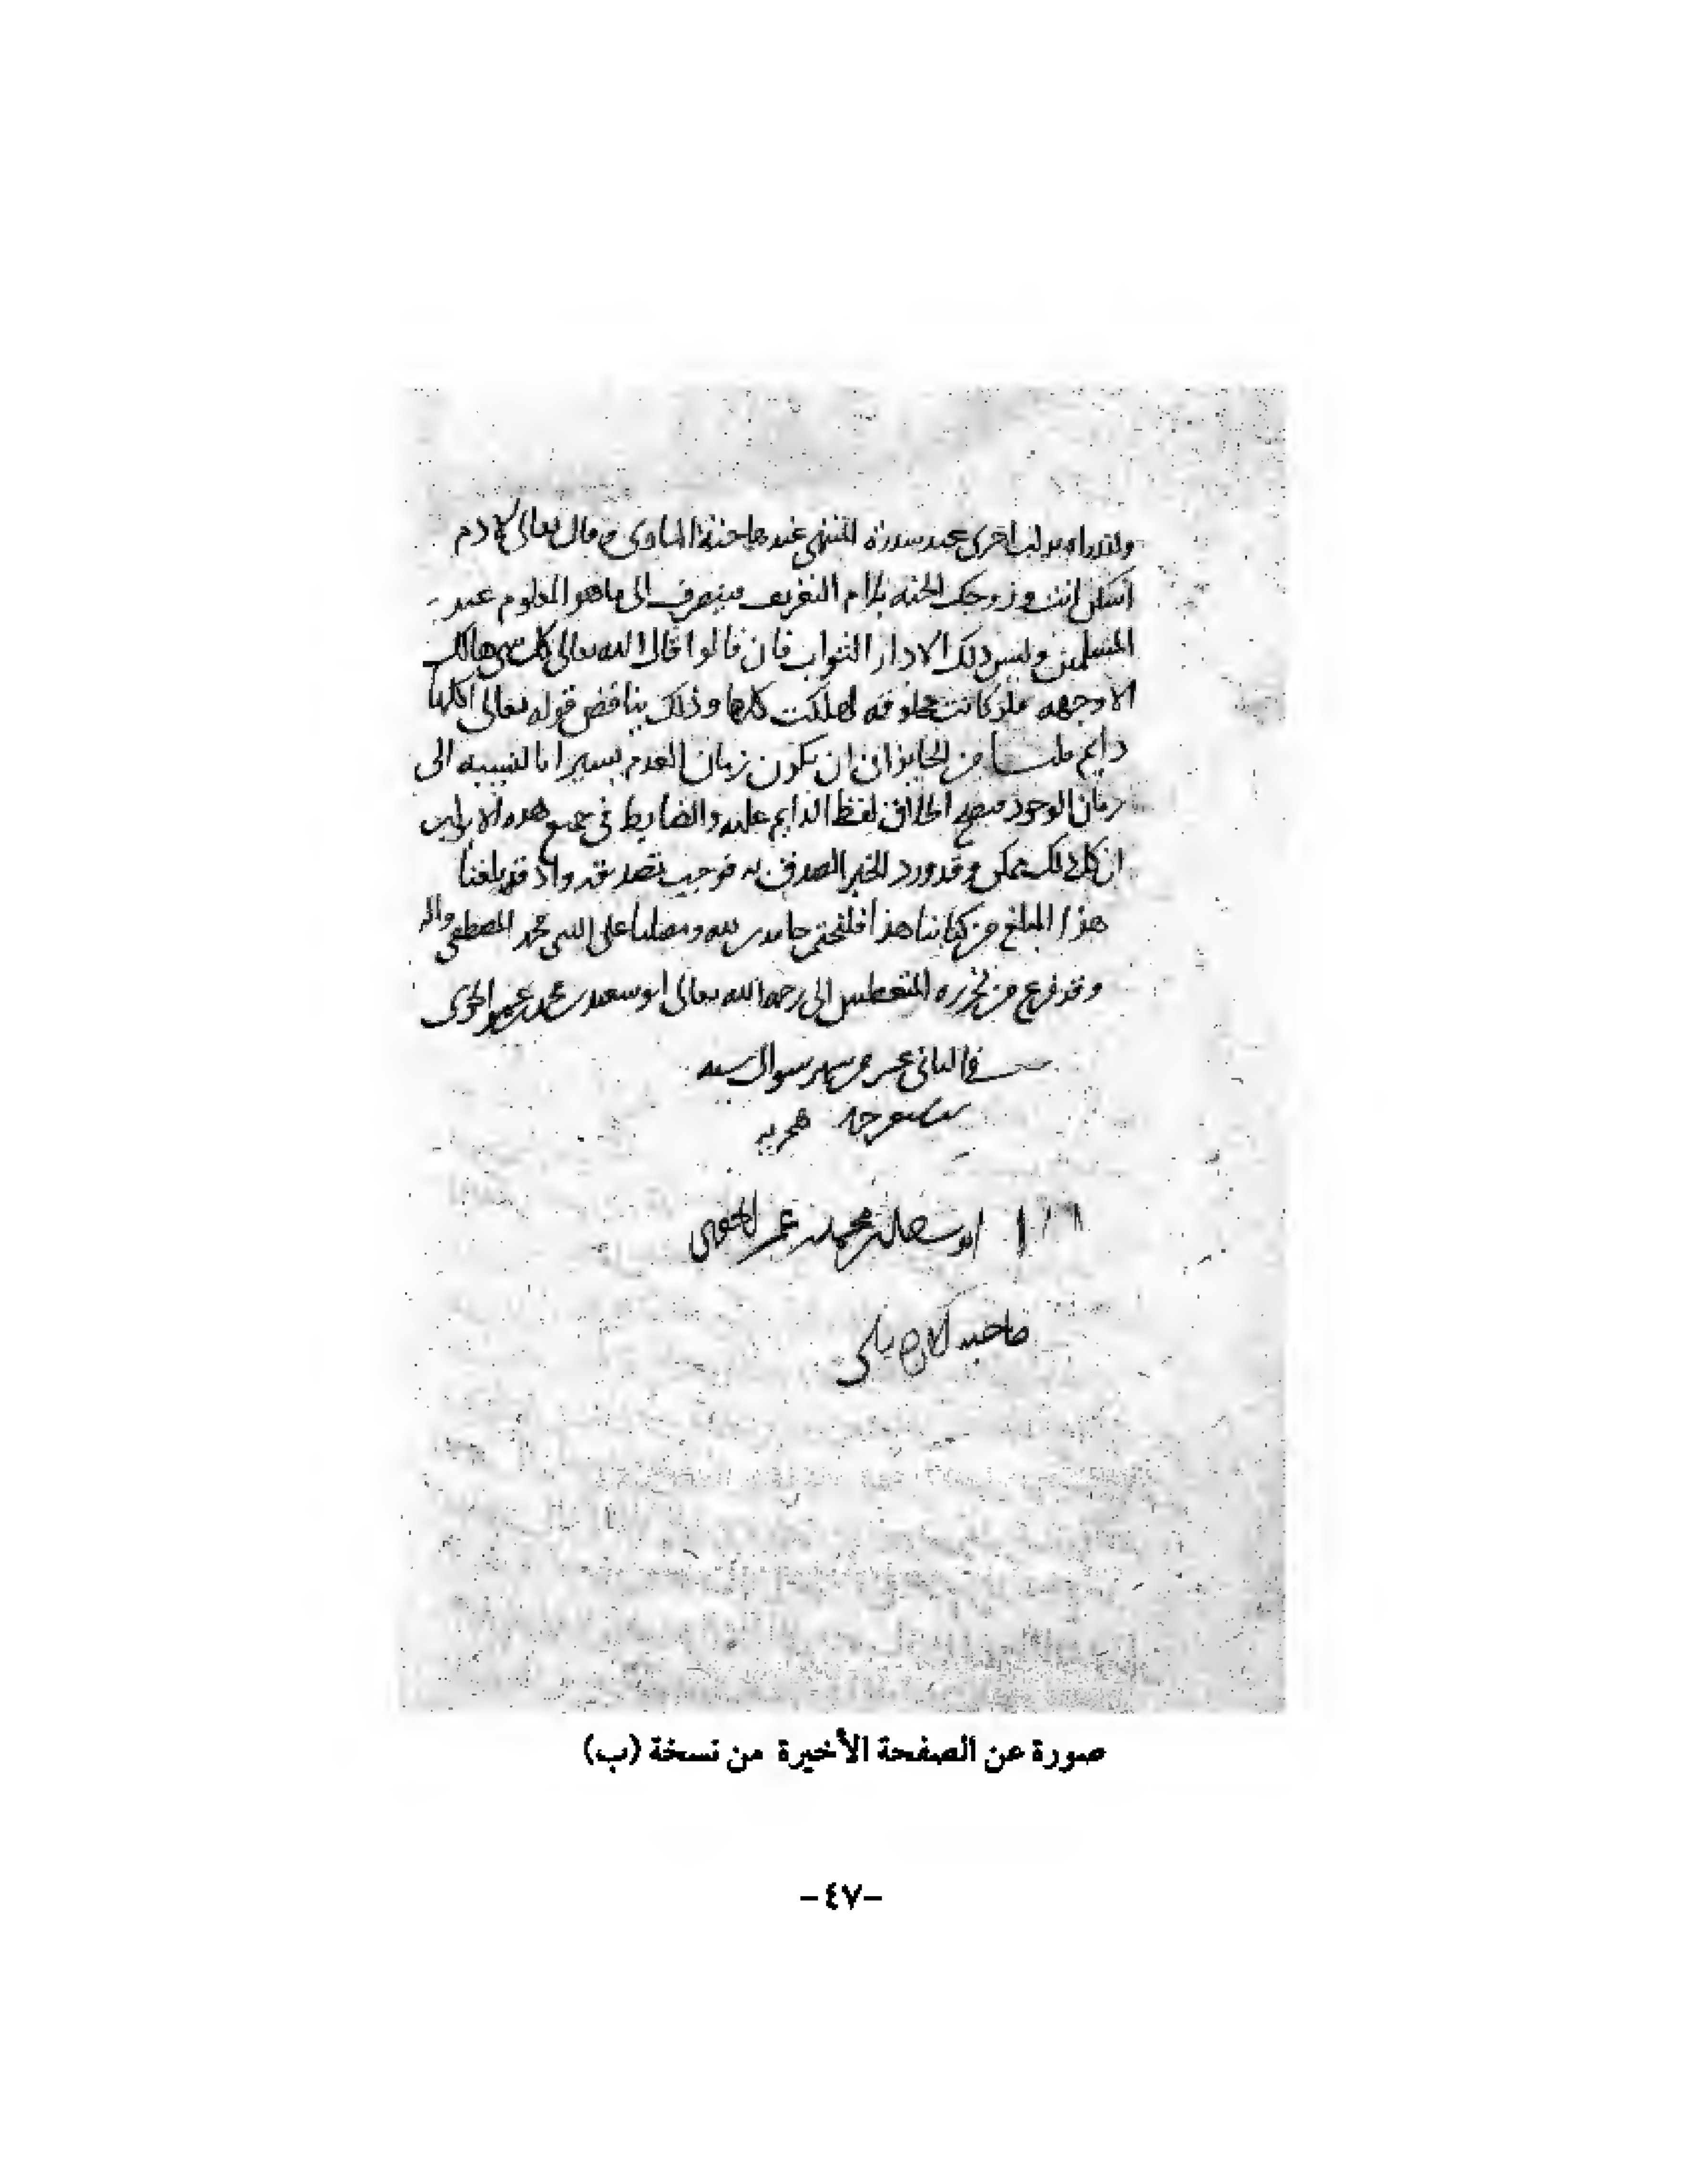 ولقد راه نزلة اخرى عند سدرة المنتهى عندها جنة الماوى وقال تعالى لادم
اسكن انت وزوجك الجنة بلام التعريف فينصرف الى ما هو المعلوم عند
المسلمين وليس ذلك الا دار الثواب فان قالوا قال الله تعالى كل شي هالك
الا وجهه فلو كانت مخلوقة لهلكت كلها وذلك يناقض قوله تعالى اكلها
دايم قلنا من الجايز ان يكون زمان العدم يسيرا بالنسبة الى
زمان الوجود فيصح اطلاق لفظ الدايم عليه والضابط في جميع هذه الابواب
ان كل ذلك ممكن وقد ورد الخبر الصدق به فوجب تصديقه واذ قد بلغنا
هذا المبلغ من كتابنا هذا فلنختم حامدين لله ومصليا على النبي محمد المصطفى واله
وقد فرغ من تحريره المتعطش الى رحمة الله تعالى ابو سعيد بن محمد بن عمر
في الثاني عشر من شهر شوال سنة
هجرية
محمد بن عمر
صورة عن الصفحة الأخيرة من نسخة (ب)
-٤٧-